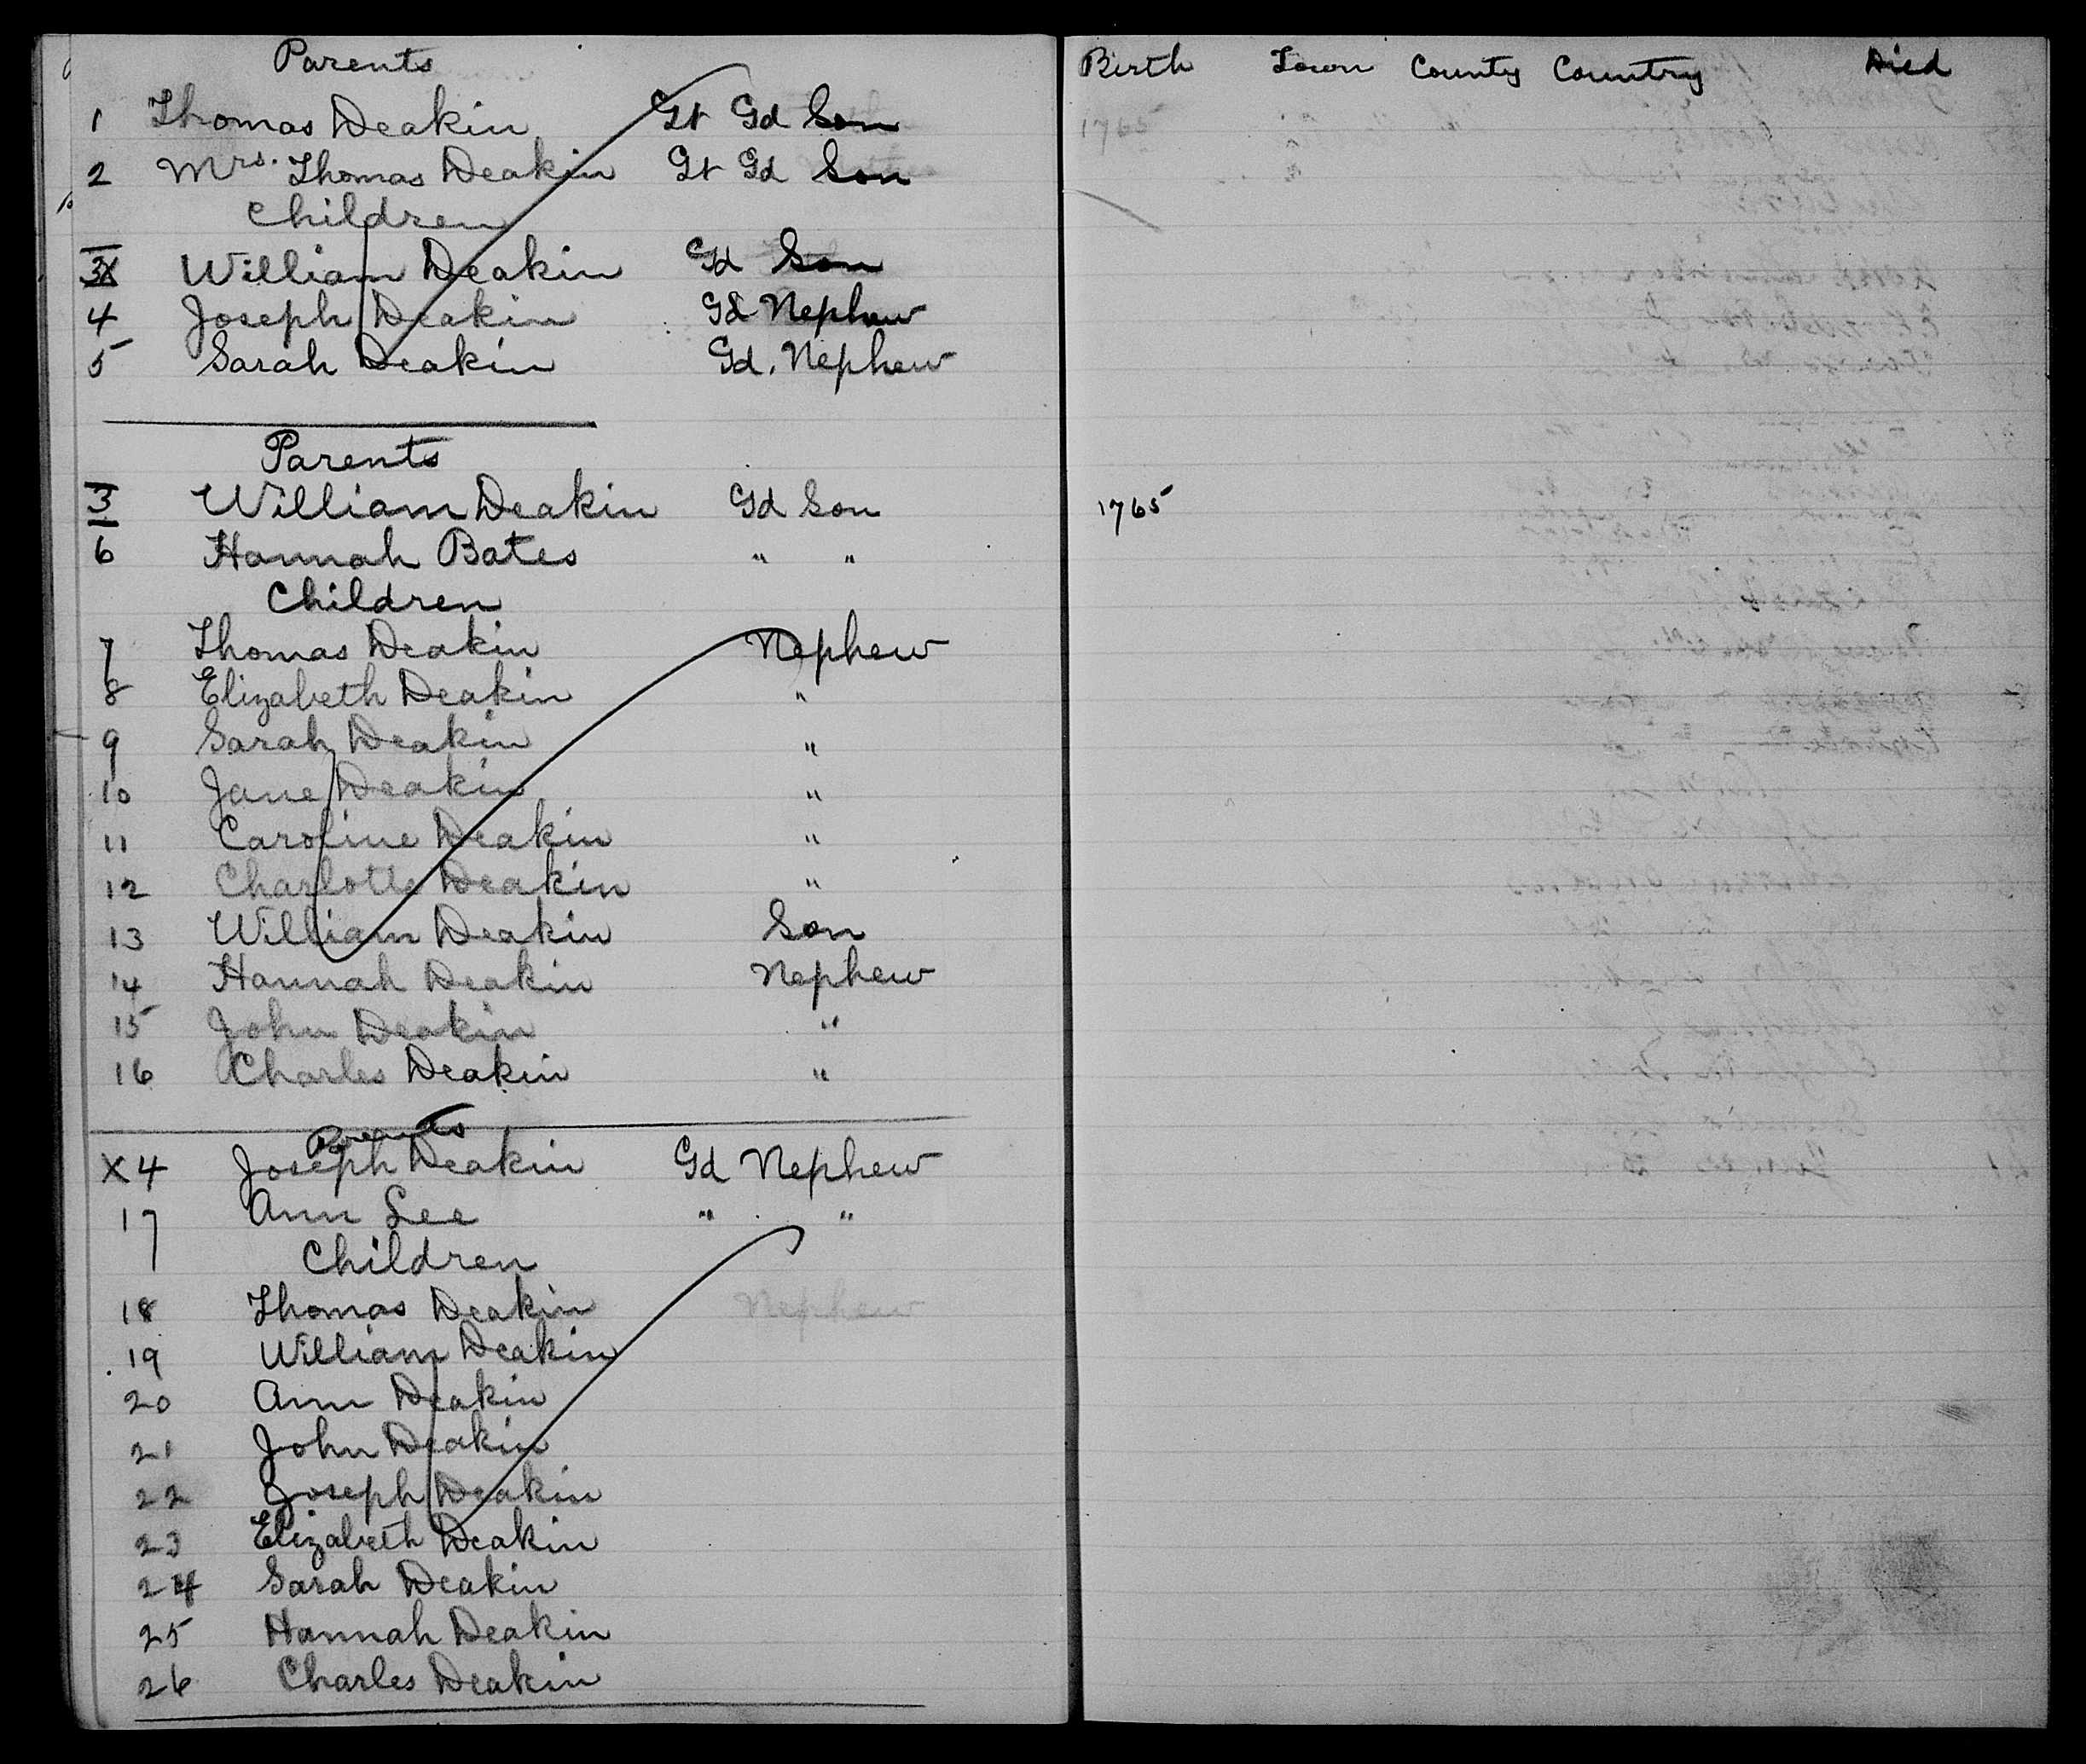 Parents
1 Thomas Deakin Gt Gd Son
2 Mrs. Thomas Deakin Gt Gd Son
Children
3X William Deakin Gd Son
4 Joseph Deakin Gd Nephew
5 Sarah Deakin Gd. Nephew
Parents
3 William Deakin Gd Son
6 Hannah Bates " "
Children
7 Thomas Deakin Nephew
8 Elizabeth Deakin "
9 Sarah Deakin "
10 Jane Deakin "
11 Caroline Deakin "
12 Charlotte Deakin "
13 William Deakin Son
14 Hannah Deakin Nephew
15 John Deakin "
16 Charles Deakin "
Parents
X4 Joseph Deakin Gd Nephew
17 Ann Lee " "
Children
18 Thomas Deakin Nephew
19 William Deakin
20 Ann Deakin
21 John Deakin
22 Joseph Deakin
23 Elizabeth Deakin
24 Sarah Deakin
25 Hannah Deakin
26 Charles Deakin
Birth Town County Country Died
1765
1765